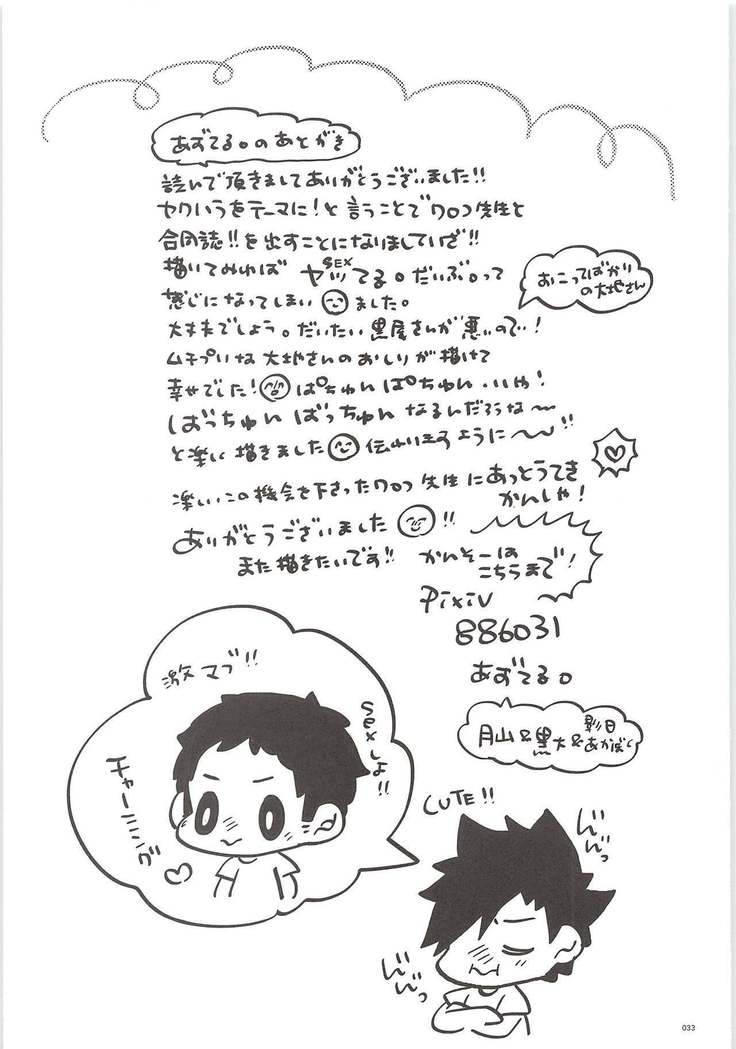 あずてる。のあとがき
読んで頂きましてありがとうございました!!
ヤクいうをテーマに!と言うことでワロフ先生と
合同誌!!を出すことになりましていざ!!
描いてみれば ヤッてる。だいぶ。って
SEX
感じになってしまいました。
おこってばかり
の大地さん
大丈夫でしょう。だいたい黒尾さんが悪いので!
ムチプリな大地さんのおしりが描けて
幸せでした! ぱちゅんぱちゅん・いや!
ばっちゅんばっちゅんなるんだろうな〜
と楽しい描きました 伝わりますように〜!!
楽しいこの機会を下さったワロフ先生にあっとうてき
かんしゃ!
ありがとうございました!!
また描きたいです!!
かんそーは
こちらまで!
Pixiv
886031
あずてる。
月山&黒大&影日
あかぼく
激マブ!!
sexしよ!!
チャーミング
CUTE!!
んんっ
んんっ
033